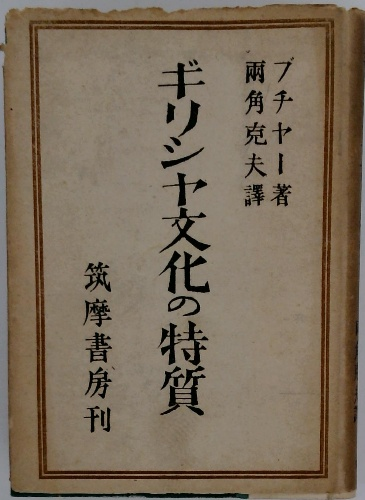 ブチャー著
兩角克夫譯
ギリシャ文化の特質
筑摩書房刊